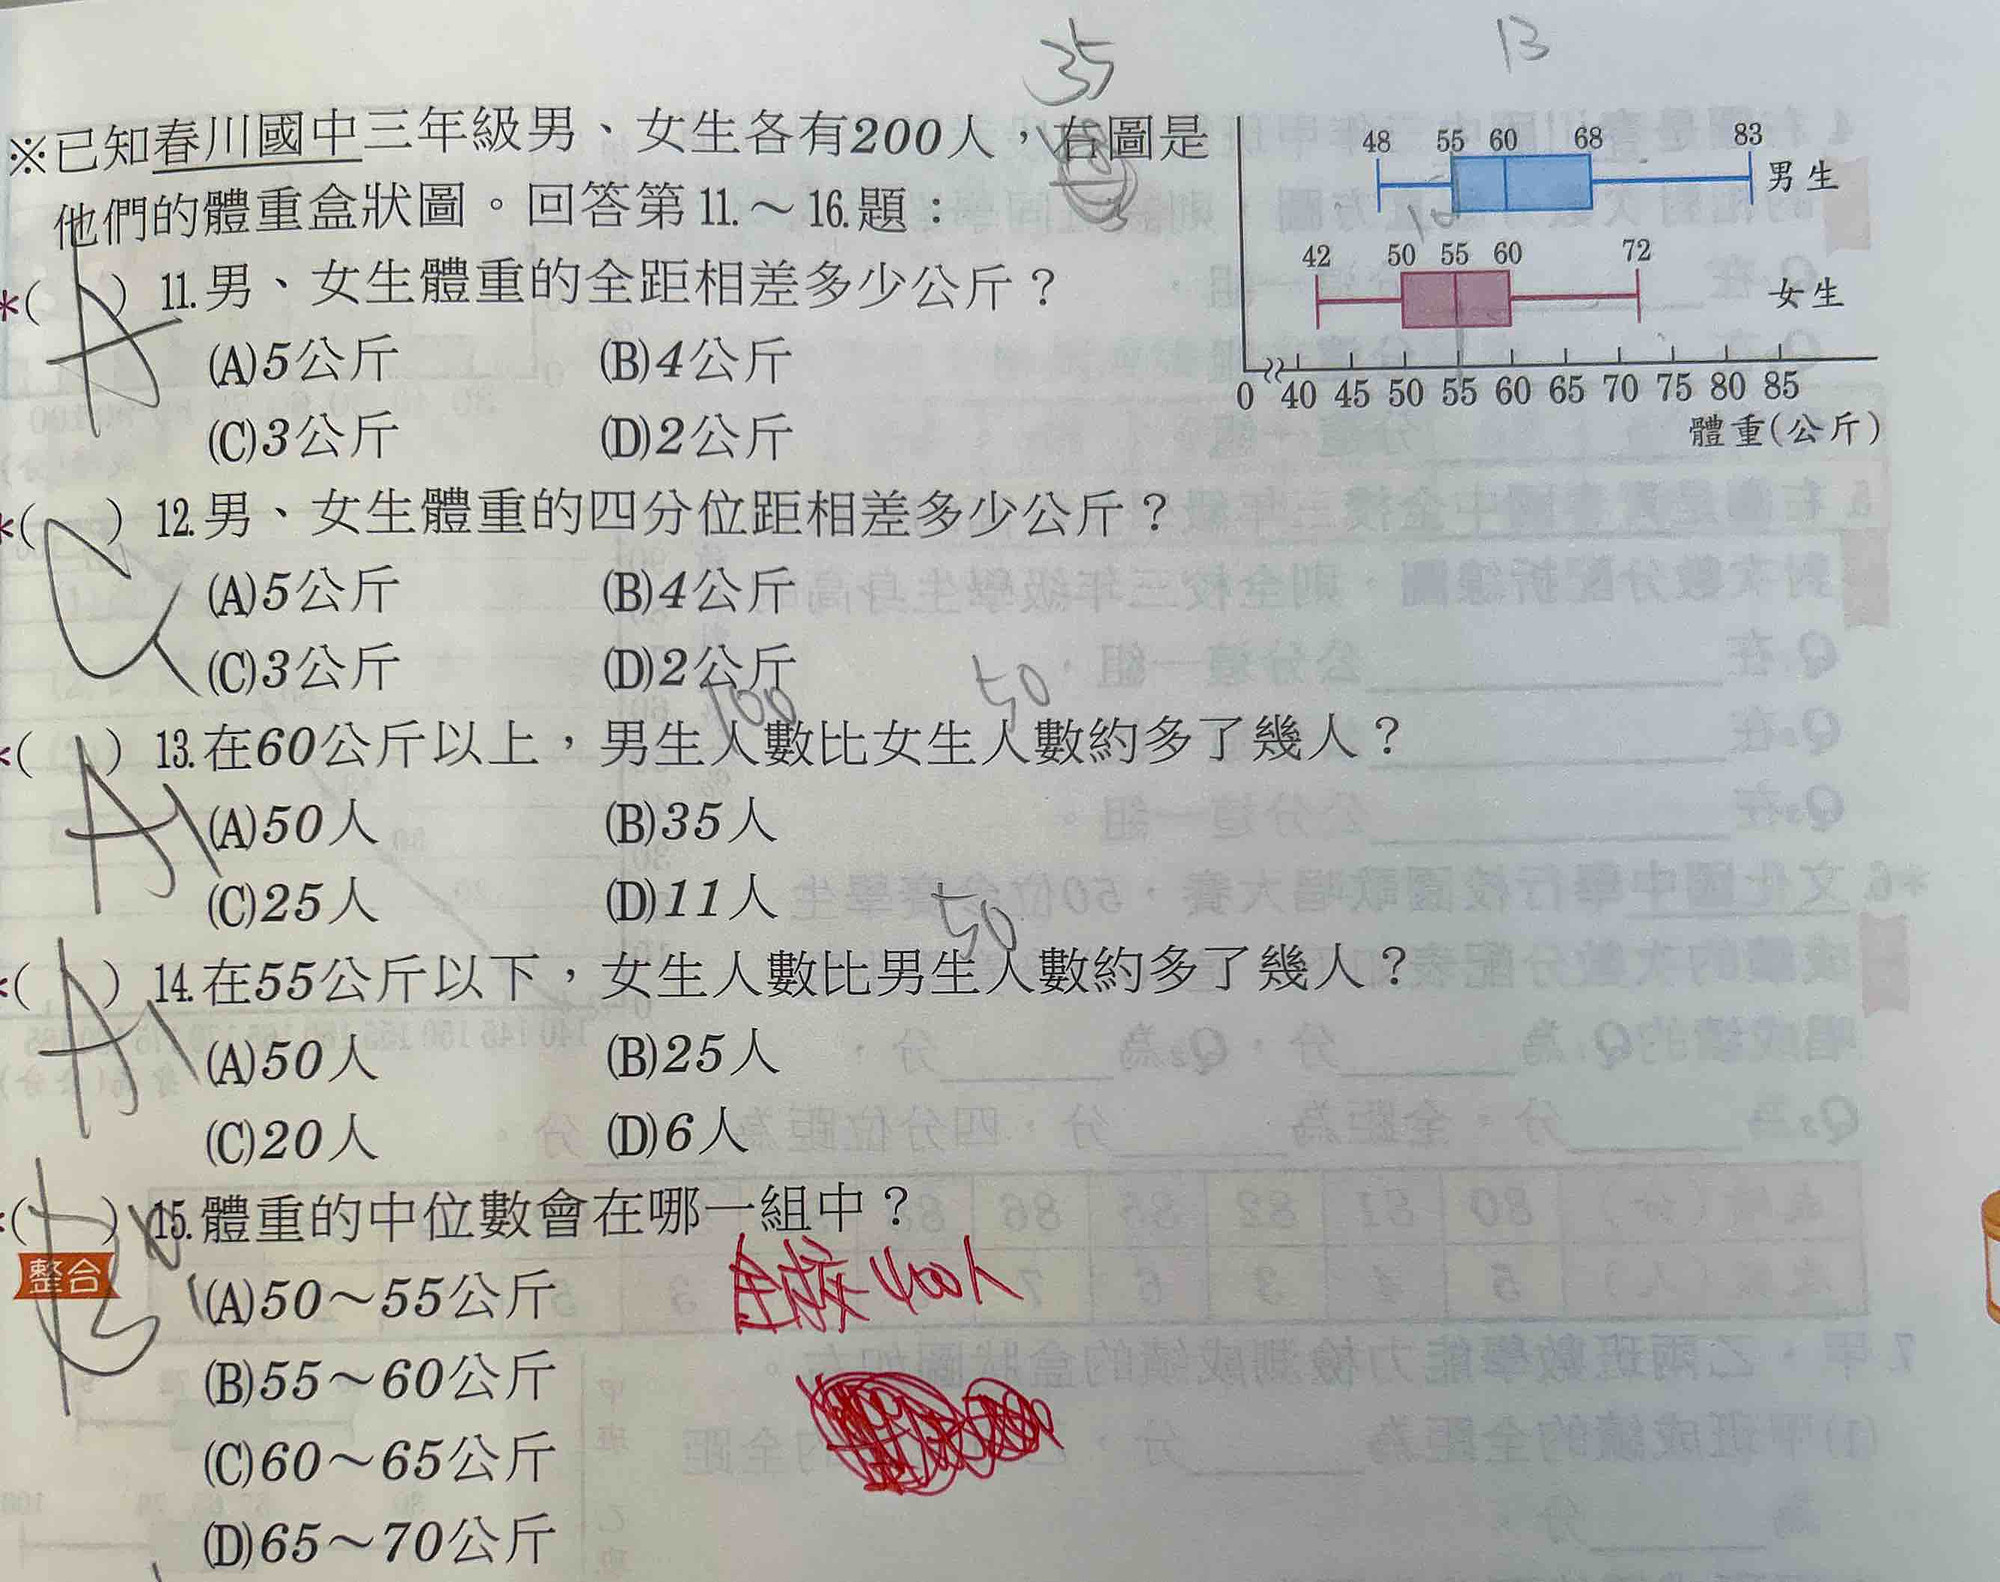 35
13
※已知春川國中三年級男、女生各有200人，右圖是
他們的體重盒狀圖。回答第11.～16.題：
48 55 60 68 83
男生
10
42 50 55 60 72
女生
0 40 45 50 55 60 65 70 75 80 85
體重(公斤)
*( A ) 11.男、女生體重的全距相差多少公斤？
(A)5公斤 (B)4公斤
(C)3公斤 (D)2公斤
*( C ) 12.男、女生體重的四分位距相差多少公斤？
(A)5公斤 (B)4公斤
(C)3公斤 (D)2公斤
100 50
*( A ) 13.在60公斤以上，男生人數比女生人數約多了幾人？
(A)50人 (B)35人
(C)25人 (D)11人
50
*( A ) 14.在55公斤以下，女生人數比男生人數約多了幾人？
(A)50人 (B)25人
(C)20人 (D)6人
*( B ) 15.體重的中位數會在哪一組中？
整合
(A)50～55公斤
全校400人
(B)55～60公斤
(C)60～65公斤
(D)65～70公斤